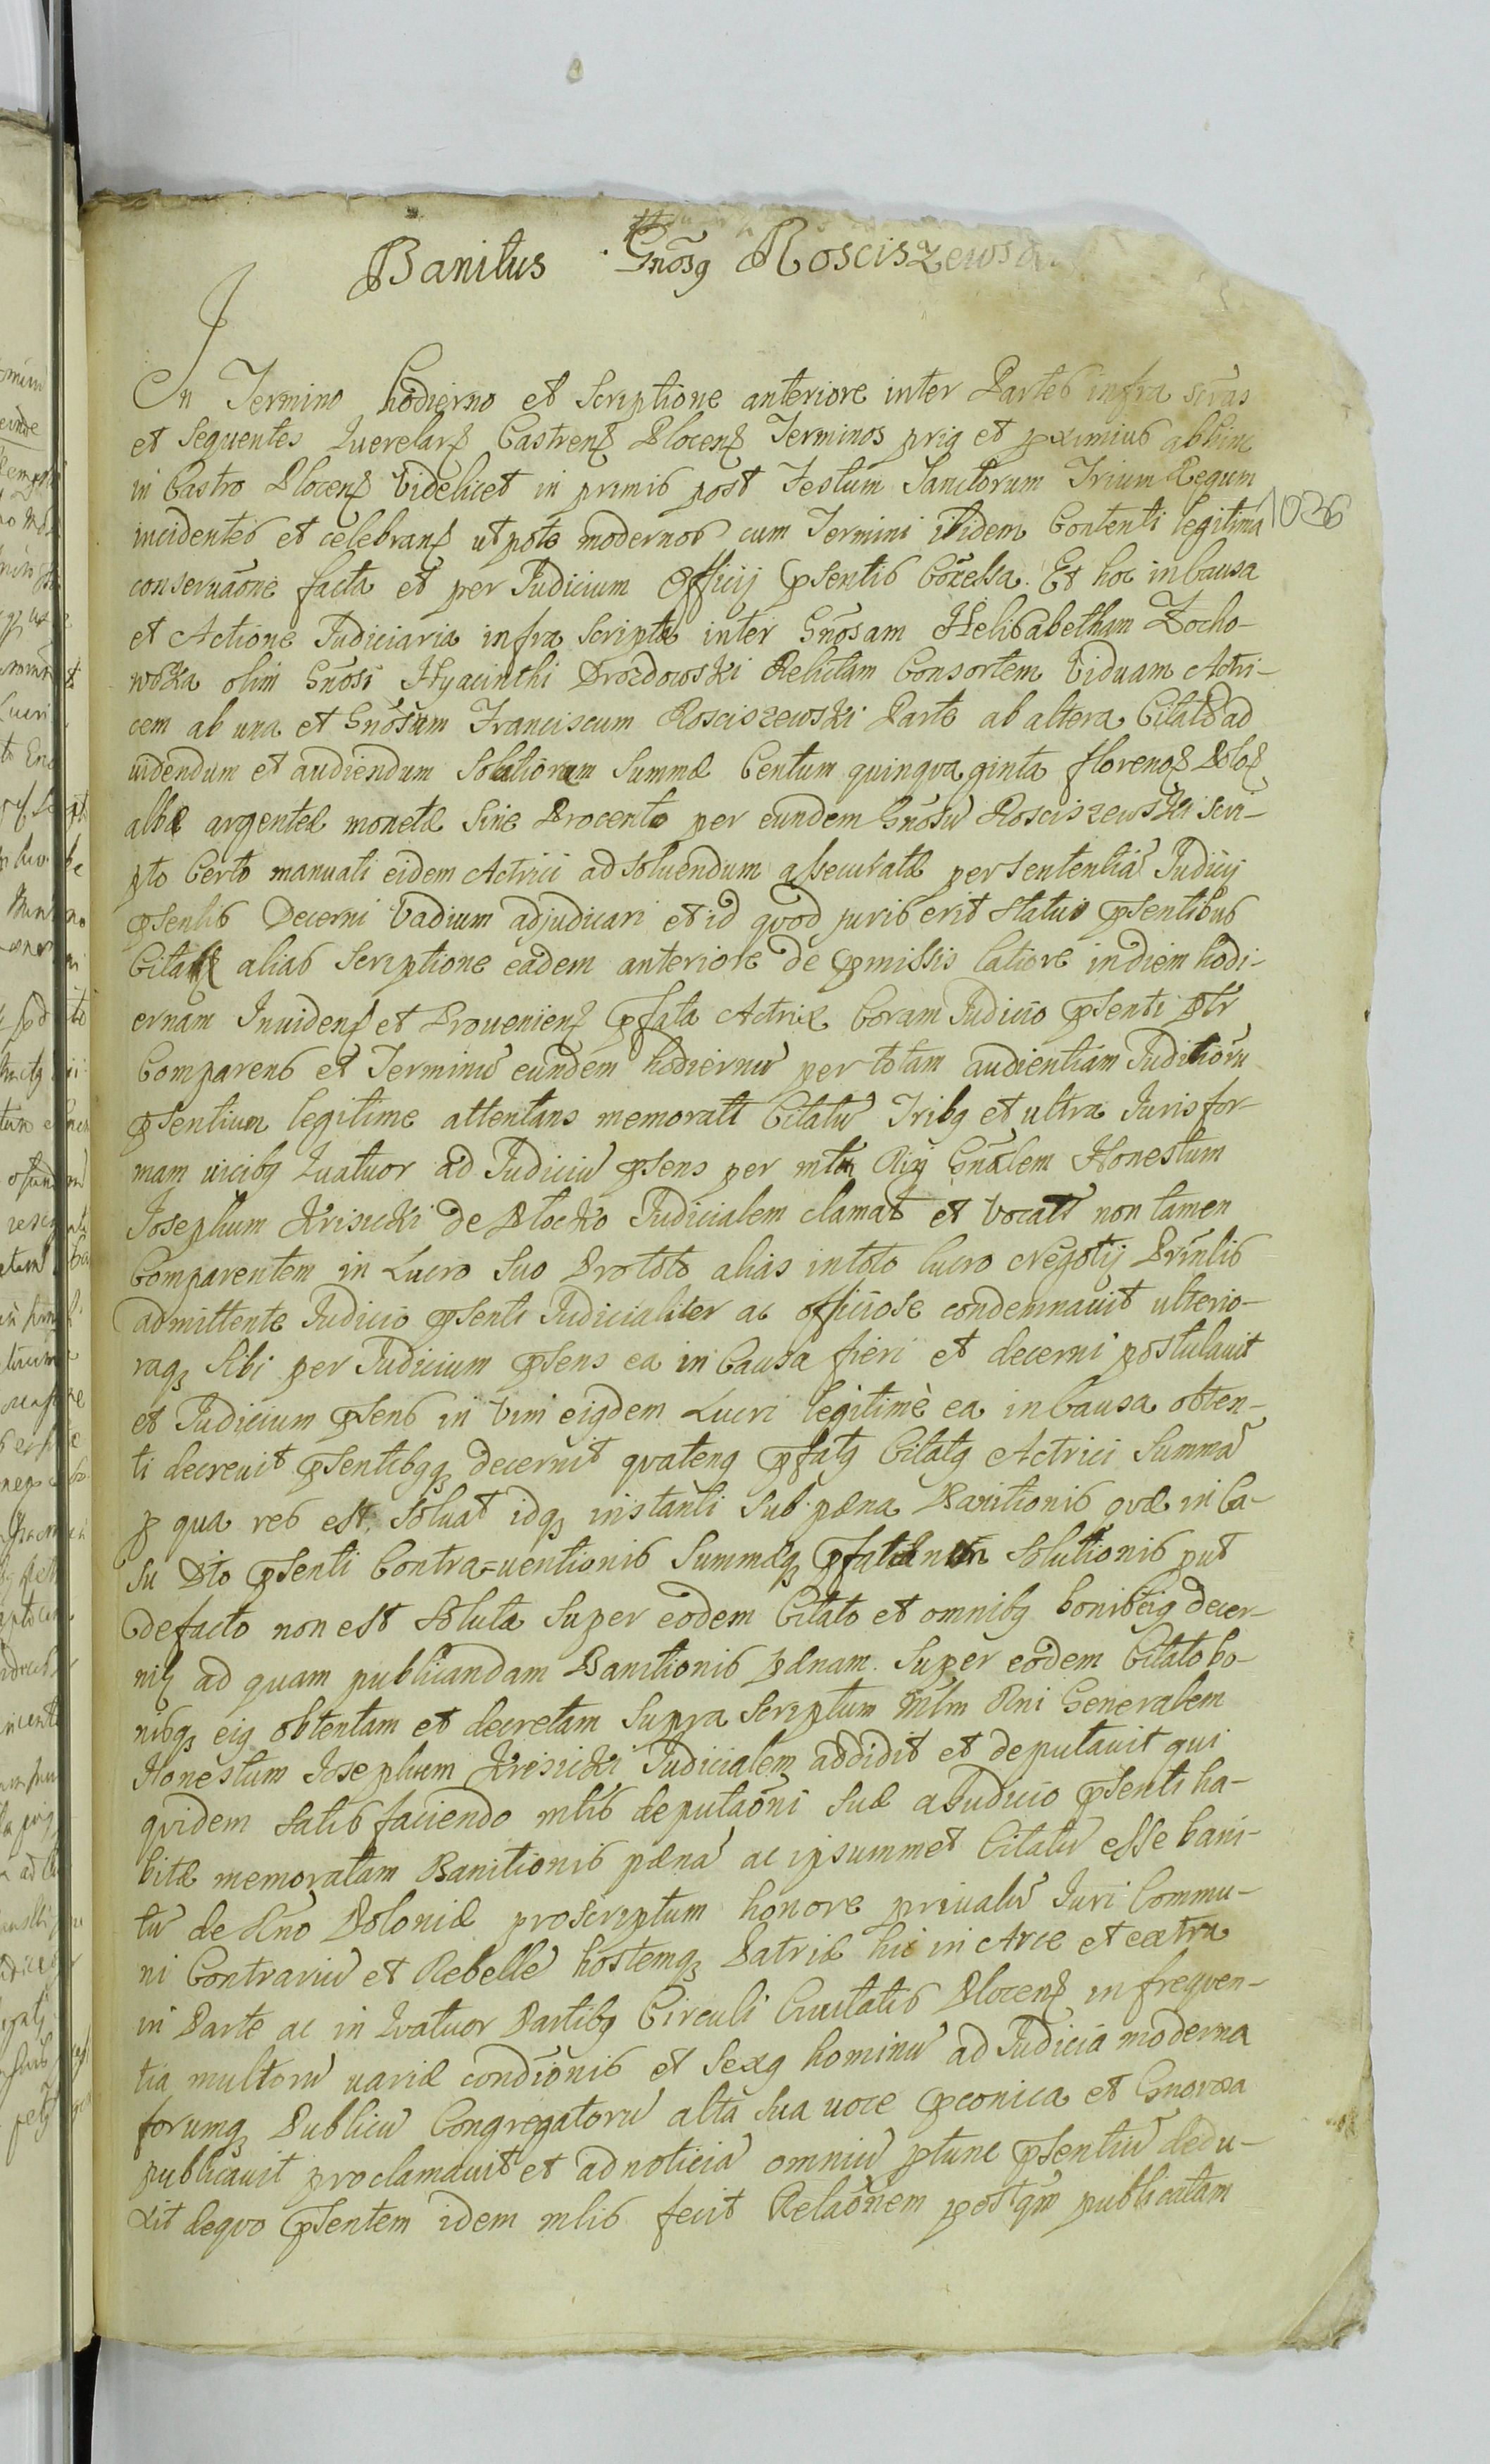 Banitus Gnõsꝯ Rosciszews
In Termino hodierno et Scriptione anteriore inter Partes infra scras
et Sequentes Querelarꝫ Castrenꝫ Plocenꝫ Terminos prig et pximius abhinc
in Castro Plocenꝫ Videlicet in primis post Festum Sanctorum Trium Regum
incidentes et celebranꝫ utpote modernos cum Termini itidem Contenti legitima
1036
conseruãone facta et per Judicium Officij pſentis
et Actione Judiciaria infra scripta inter Gnõsam Helisabetham Zocho-
wska olim Gnõsi Hyacinthi Drozdowski Relictam Consortem Viduam Actri-
cem ab una et Gnõsum Franciscum Rosciszewski Parte ab altera Citatũ ad
uidendum et audiendum Solutionem Summæ Centum quinquaginta florenoꝫ Poloꝫ
albæ argenteæ monetæ Sine Procento per eundem Gnõsũ Rosciszewski scri-
pto Certo manuali eidem Actrici ad soluendum assecuratæ per sententiã Judicij
pſentis Decerni Vadium adjudicari et id quod juris erit statui pſentibus
Citatꝫ alias Scriptione eadem anteriore de pmissis latiore in diem hodi-
ernam Inuidenꝫ et Prouenienꝫ pfata Actrix Coram Judicio pſenti ptr
Comparens et Terminũ eundem hodiernũ per totam audientiam Judiciorũ
pſentium legitime attentans memorati Citatũ Tribꝯ et ultra Juris for-
mam uicibꝯ Quatuor ad Judiciũ pſens per mtn Rij Gnãlem Honestum
Josephum Krisicki de Plocko Judicialem clamat et Vocat non tamen
Comparentem in Lucro Suo Pro toto alias in toto lucro Negotij Prinlis
admittente Judicio pſenti Judicialiter ac officiose condemnauit ulterio-
raqꝫ Sibi per Judicium pſens ea in Causa fieri et decerni postulauit
et Judicium pſens in Vim eiꝯdem Lucri legitimè ea in Causa obten-
ti decreuit pſentibꝯqꝫ decernit quatenꝯ pfatꝯ Citatꝯ Actrici Summã
p qua res est, Soluat idqꝫ instanti Sub pæna Banitionis quæ in Ca-
su Dto pſenti Contra=uentionis Summæqꝫ pfatæ non Solutionis put
de facto non est Soluta Super eodem Citato et omnibꝯ bonis eiꝯ decer-
niꝫ ad quam publicandam Banitionis Pænam. Super eodem Citato bo-
nisqꝫ eiꝯ obtentam et decretam Supra Scriptum Mlm Rni Generalem
Honestum Josephum Krisicki Judicialem addidit et deputauit qui
quidem Satisfaciendo mlis deputaõni Suæ a Judicio pſenti ha-
bitæ memoratam Banitionis pænã ac ipsummet Citatũ esse bani-
tũ de Rno Poloniæ proscriptum honore priuatũ Juri Commu-
ni Contrariũ et Rebellẽ hostemqꝫ Patriæ hic in Arce et extra
in Parte ac in Quatuor Partibꝯ Circuli Ciuitatis Plocenꝫ in frequen-
tia multorũ uariæ condionis et Sexꝯ hominũ ad Judicia moderna
forumqꝫ Publicũ Congregatorũ alta sua uoce pconica et
publicauit proclamauit et ad noticiã omniũ ptunc pſentiũ dedu-
xit de quo pſentem idem mlis fecit Relaõnem postqm publicatam